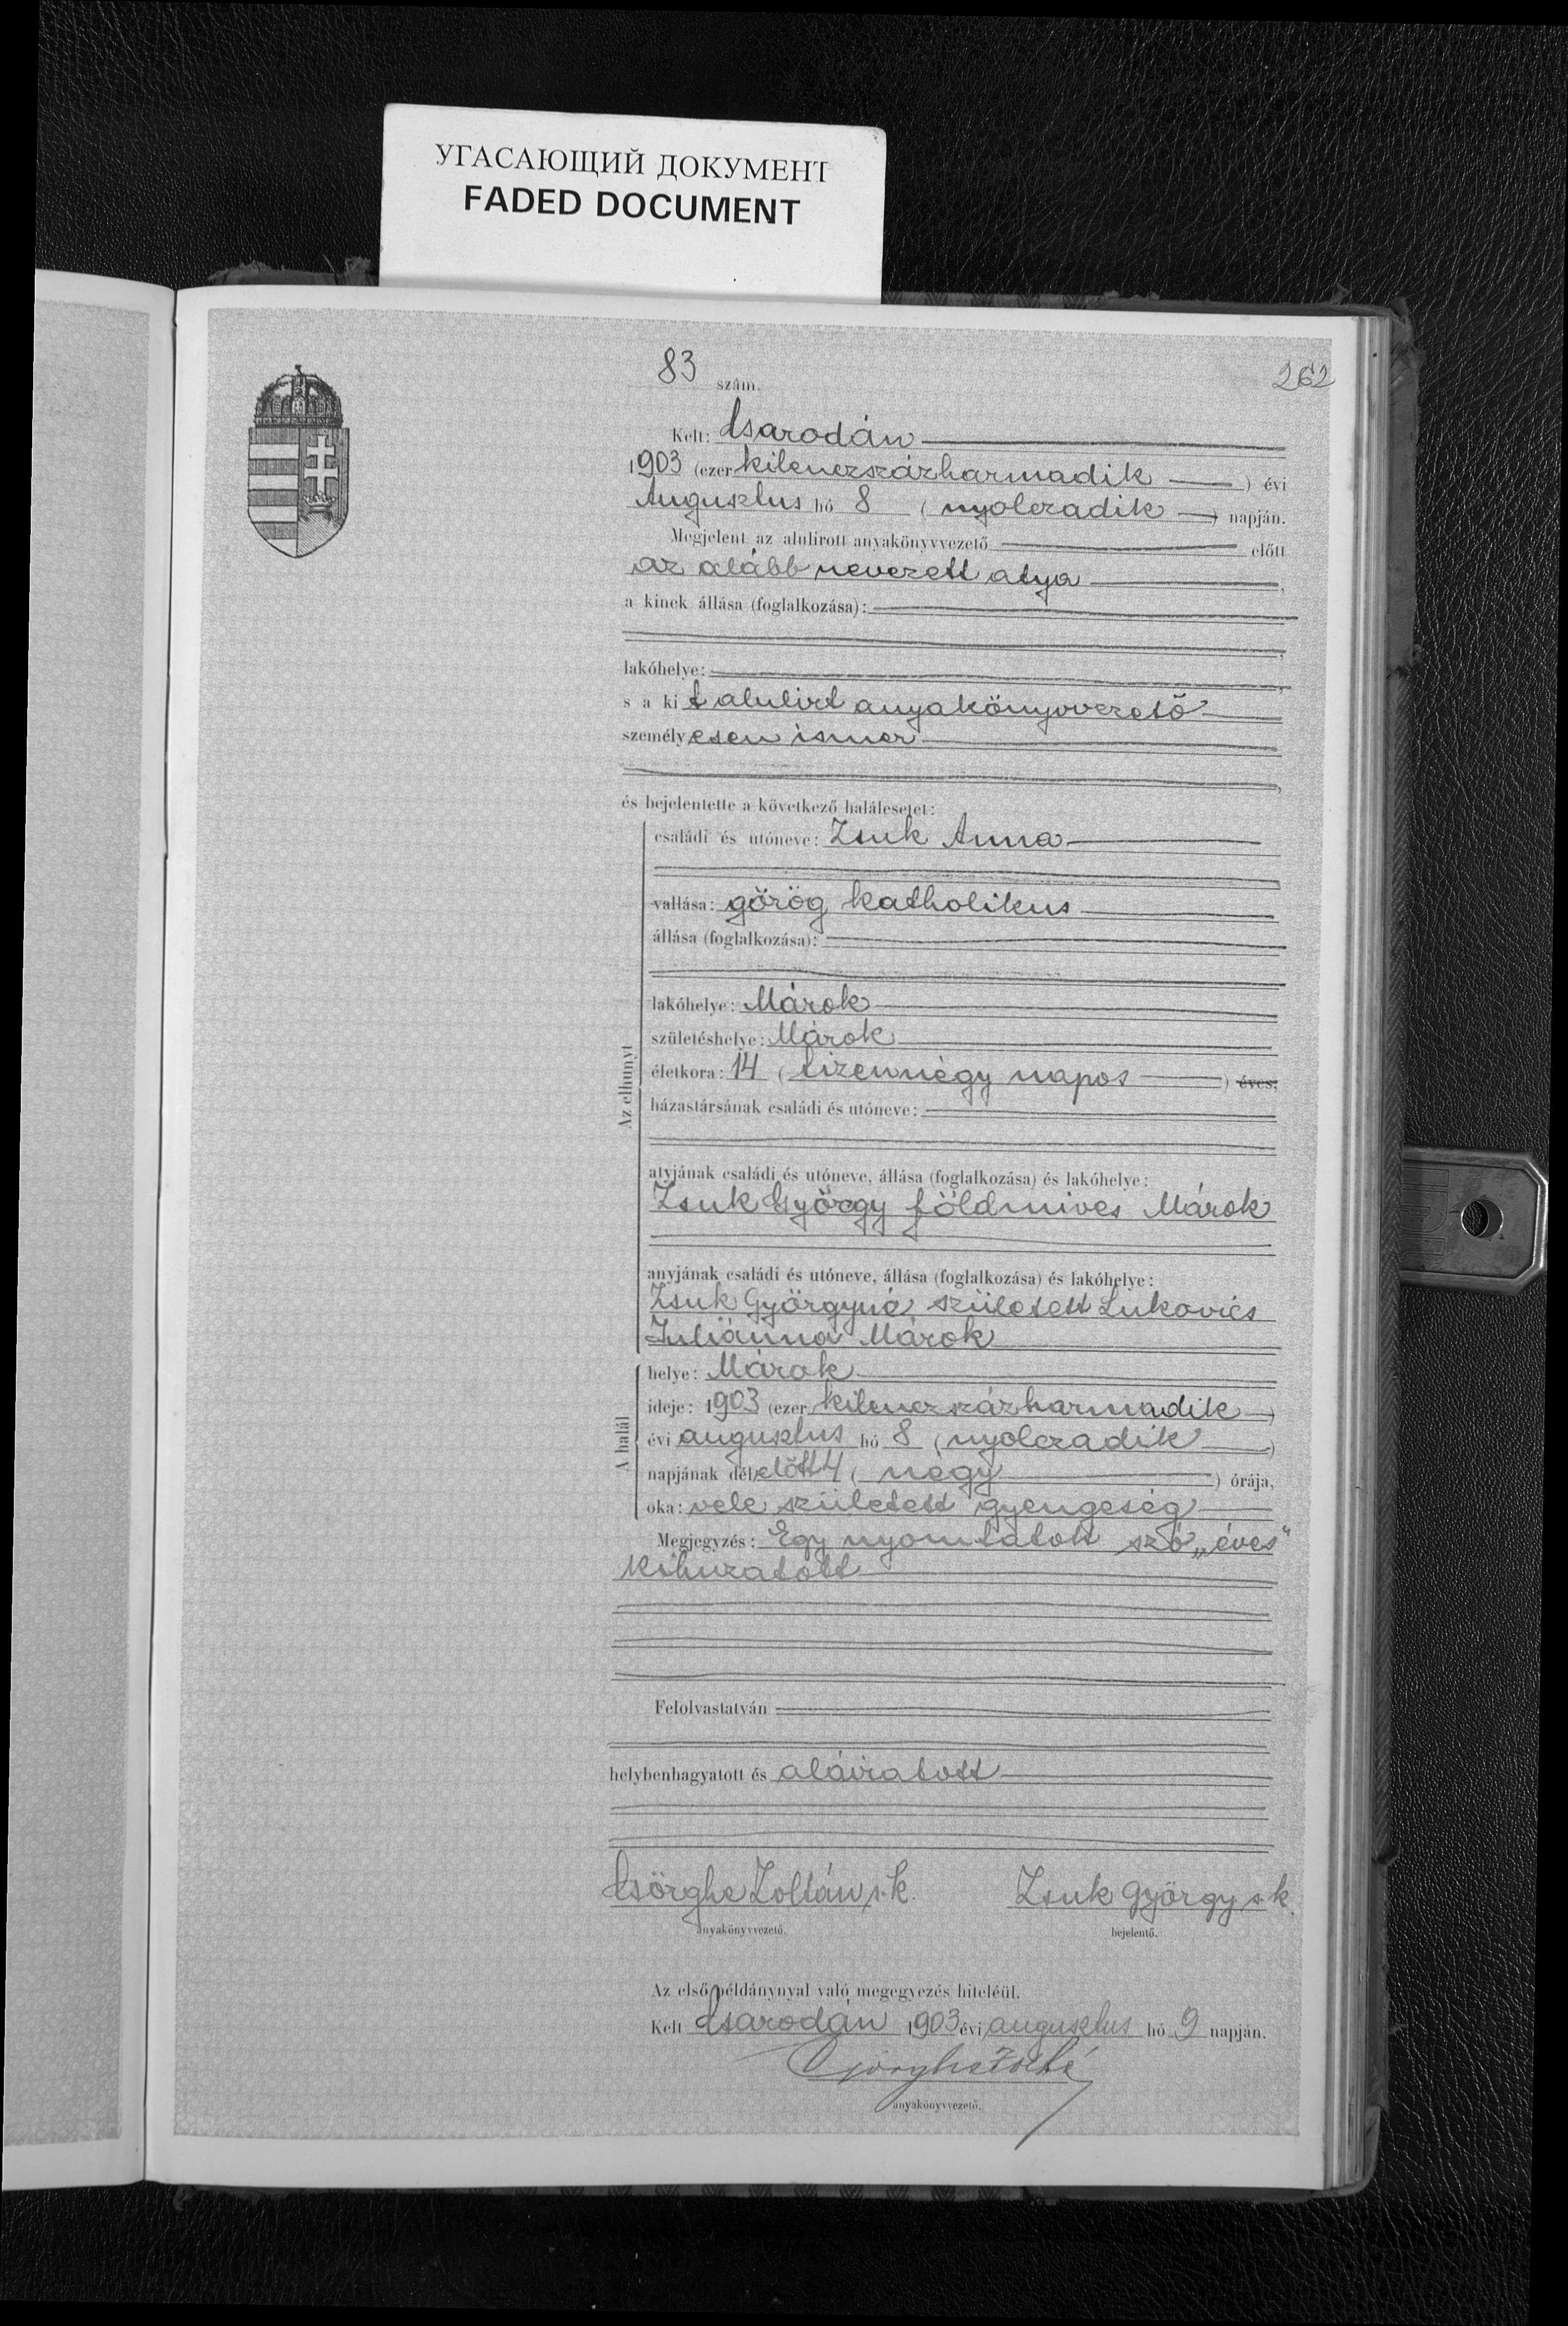 УГАСАЮЩИЙ ДОКУМЕНТ
FADED DOCUMENT
83 szám.
262
Kelt: Csarodán
1903 (ezer kilenczszázharmadik) évi
Augusztus hó 8 (nyolczadik) napján.
Megjelent az alulirott anyakönyvvezető előtt
az alább nevezett atya,
a kinek állása (foglalkozása):
lakóhelye:
s a kit alulirt anyakönyvvezető
személyesen ismer
és bejelentette a következő halálesetet:
Az elhunyt
családi és utóneve: Zsuk Anna
vallása: görög katholikus
állása (foglalkozása):
lakóhelye: Márok
születéshelye: Márok
életkora: 14 (tizennégy napos) éves;
házastársának családi és utóneve:
atyjának családi és utóneve, állása (foglalkozása) és lakóhelye:
Zsuk György földmives Márok
anyjának családi és utóneve, állása (foglalkozása) és lakóhelye:
Zsuk Györgyné született Lukovics
Juliánna Márok
A halál
helye: Márok
ideje: 1903 (ezer kilenczszázharmadik)
évi augusztus hó 8 (nyolczadik)
napjának délelőtt 4 (négy) órája,
oka: vele született gyengeség
Megjegyzés: Egy nyomtatott szó „éves"
kihuzatott
Felolvastatván
helybenhagyatott és aláiratott
Csörghe Zoltán s.k.
Zsuk György s.k.
anyakönyvvezető.
bejelentő.
Az első példánynyal való megegyezés hiteléül.
Kelt Csarodán 1903 évi augusztus hó 9 napján.
anyakönyvvezető.